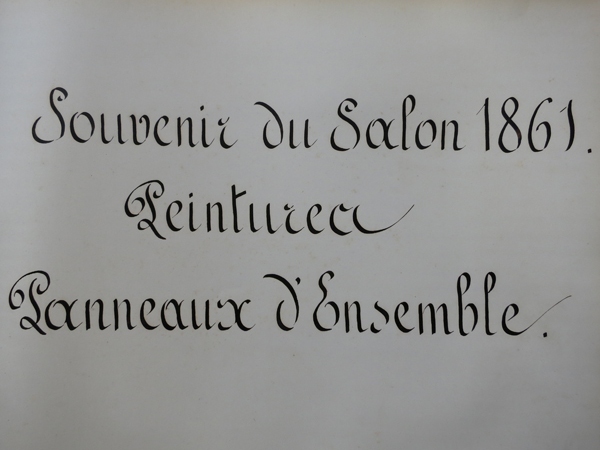 Souvenir du Salon 1861.
Peintures
Panneaux d'Ensemble.